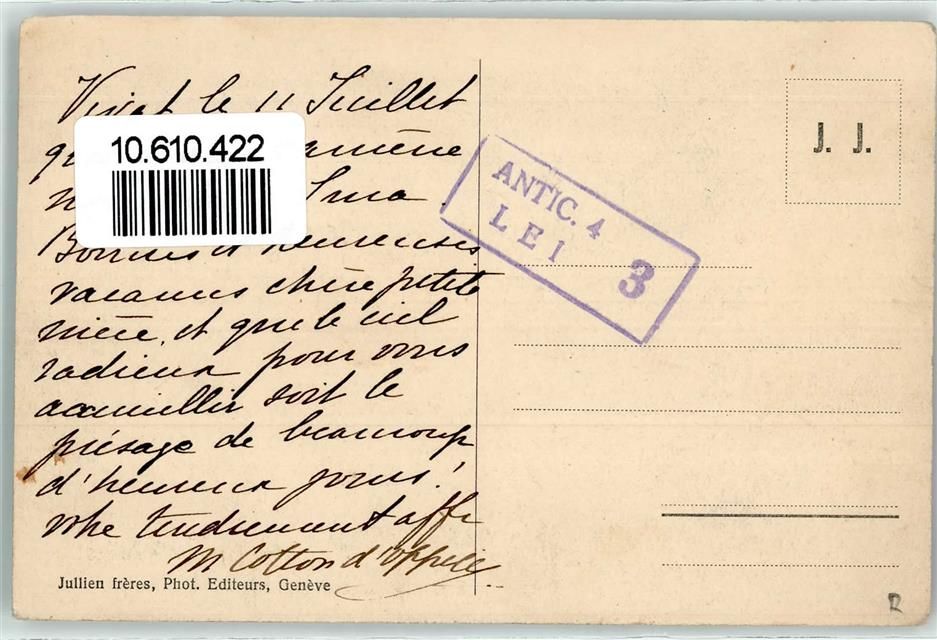 Vivat le 11 Juillet
amène
10.610.422
Bonnes et heureuses
vacances chère petite
nièce, et que le ciel
radieux pour vous
accueillir soit le
présage de beaucoup
d'heureux jours!
votre tendrement aff
M Cotton d'
Jullien frères, Phot. Editeurs, Genève
ANTIC. 4
LEI 3
J. J.
R